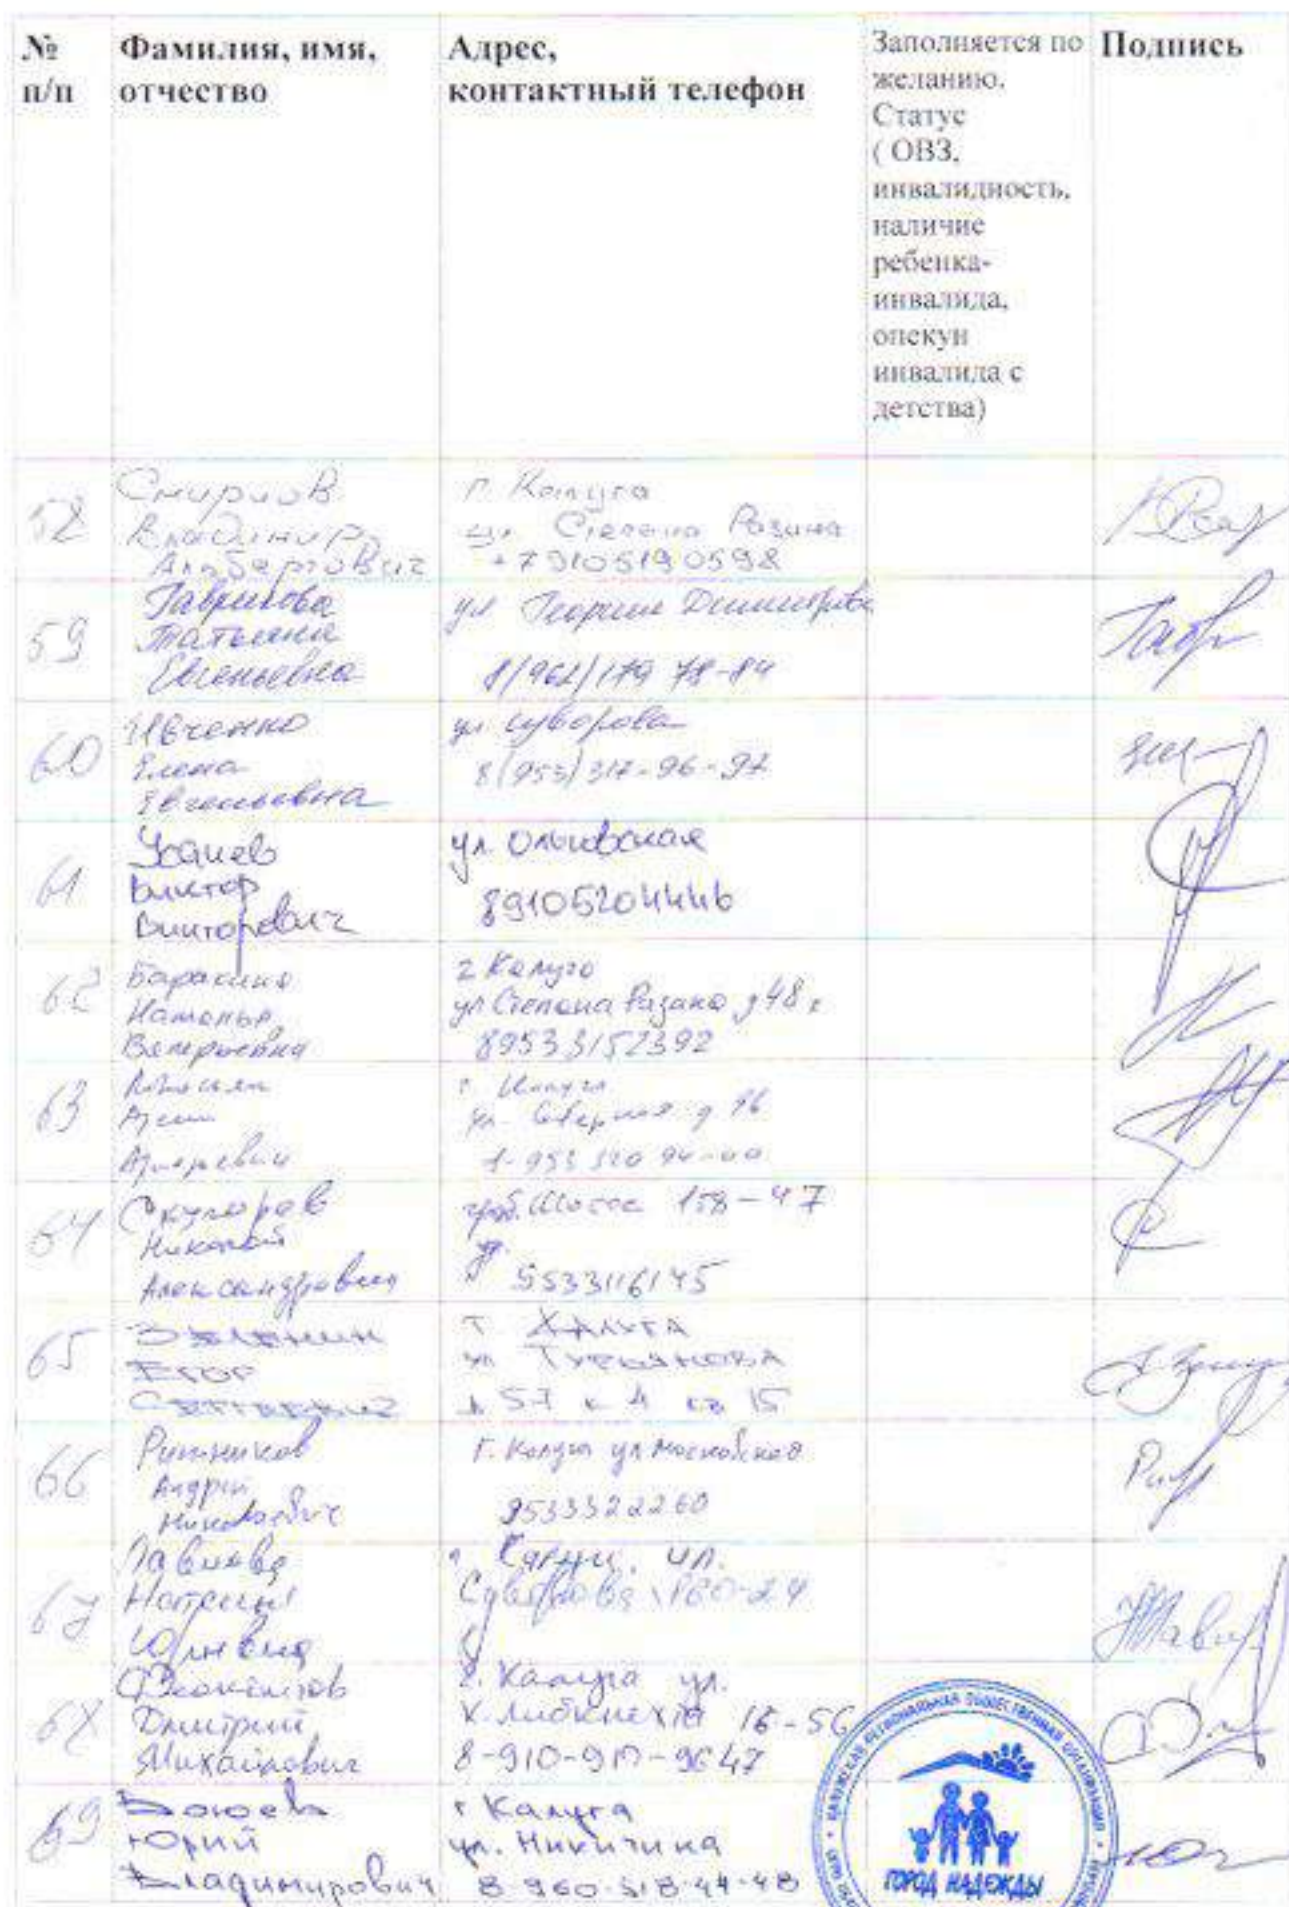 № п/п
Фамилия, имя, отчество
Адрес, контактный телефон
Заполняется по желанию. Статус ( ОВЗ, инвалидность, наличие ребенка-инвалида, опекун инвалида с детства)
Подпись
58
Смирнов
Владимир
Альбертович
г. Калуга
ул. Степана Разина
+79105190598
59
Гаврикова
Татьяна
Евгеньевна
ул Георгия Димитрова
8/962/179 78-84
60
Ивченко
Елена
Евгеньевна
ул. Суворова
8(953)317-96-97
61
Усачев
Виктор
Викторович
ул. Ольговская
89105204446
62
Наталья
Валерьевна
г Калуга
ул Степана Разина д 48
89533152392
63
г. Калуга
ул. Северная д 96
64
Скуморов
Николай
Александрович
Граб. Шоссе 158-47
9533116145
65
Зеленин
Егор
Сергеевич
г Калуга
ул
д 57 к 4 кв 15
66
Андрей
Николаевич
г. Калуга ул Московская
9533322260
67
Юрьевна
ул.
Суворова 160-24
68
Феоктистов
Дмитрий
Михайлович
г. Калуга ул.
К. Либкнехта 16-56
69
Юрий
Владимирович
г Калуга
ул. Никитина
8-960-518-44-48
КАЛУЖСКАЯ РЕГИОНАЛЬНАЯ ОБЩЕСТВЕННАЯ ОРГАНИЗАЦИЯ
ГОРОД НАДЕЖДЫ